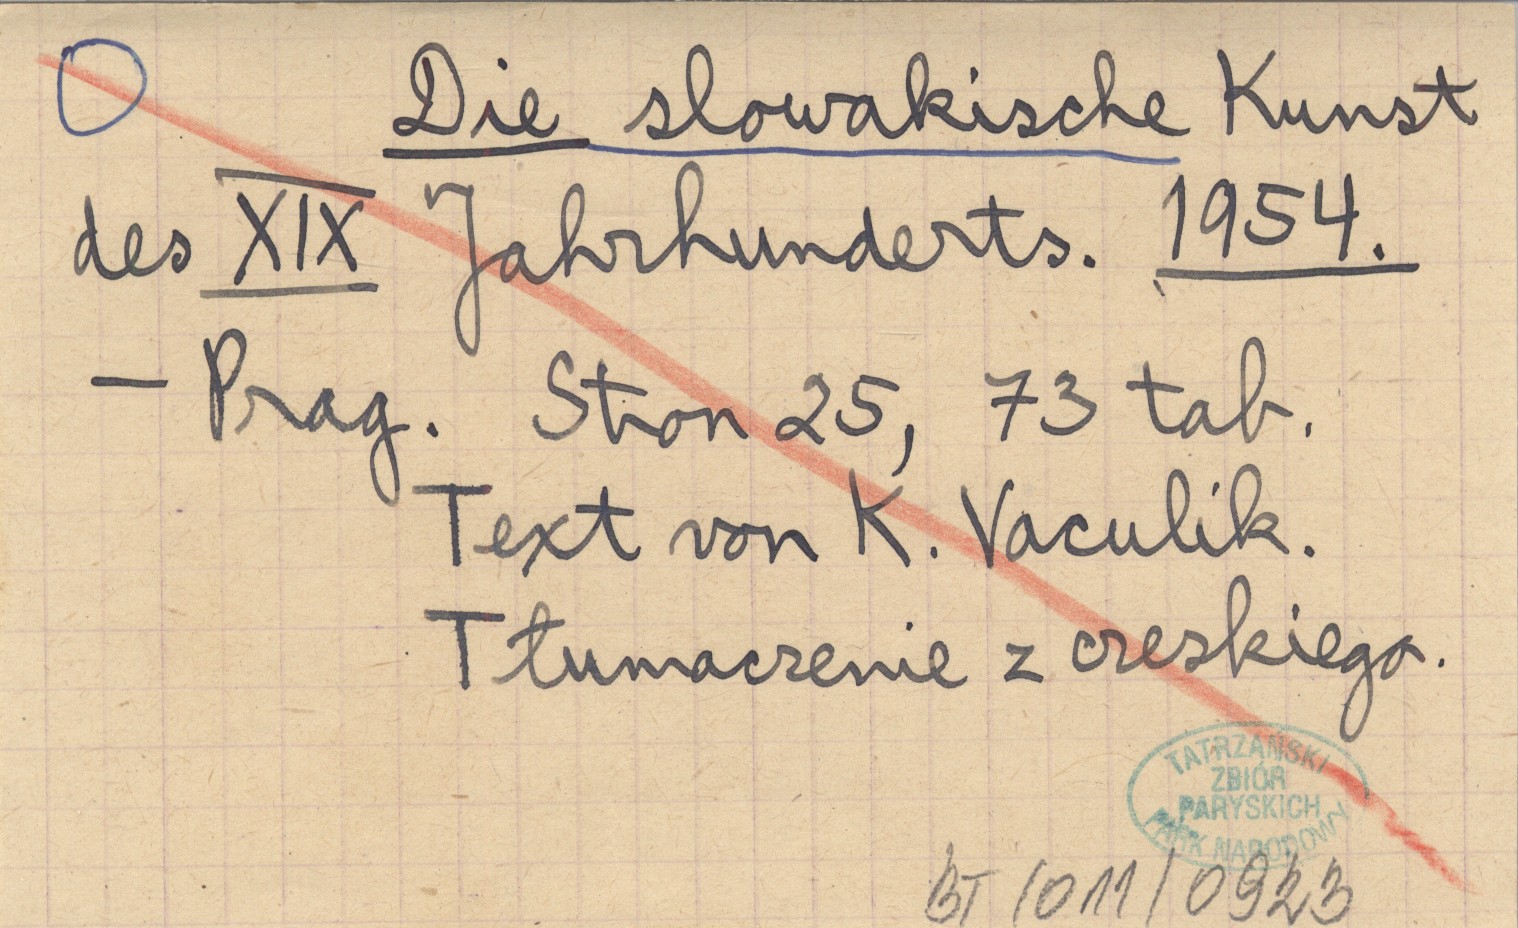 Die slowakische Kunst
des XIX Jahrhunderts. 1954.
— Prag. Stron 25, 73 tab.
Text von K. Vaculik.
Tłumaczenie z czeskiego.
TATRZAŃSKI
ZBIÓR
PARYSKICH
PARK NARODOWY
BT/011/0923